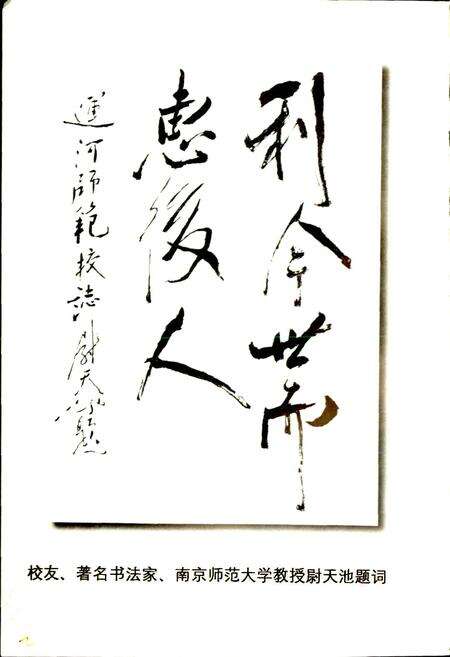 利今世而
惠後人
運河師範校誌 尉天池題
校友、著名书法家、南京师范大学教授尉天池题词